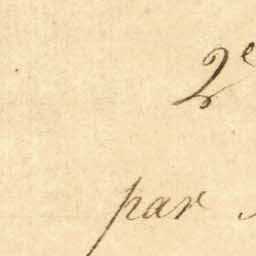 2e
par